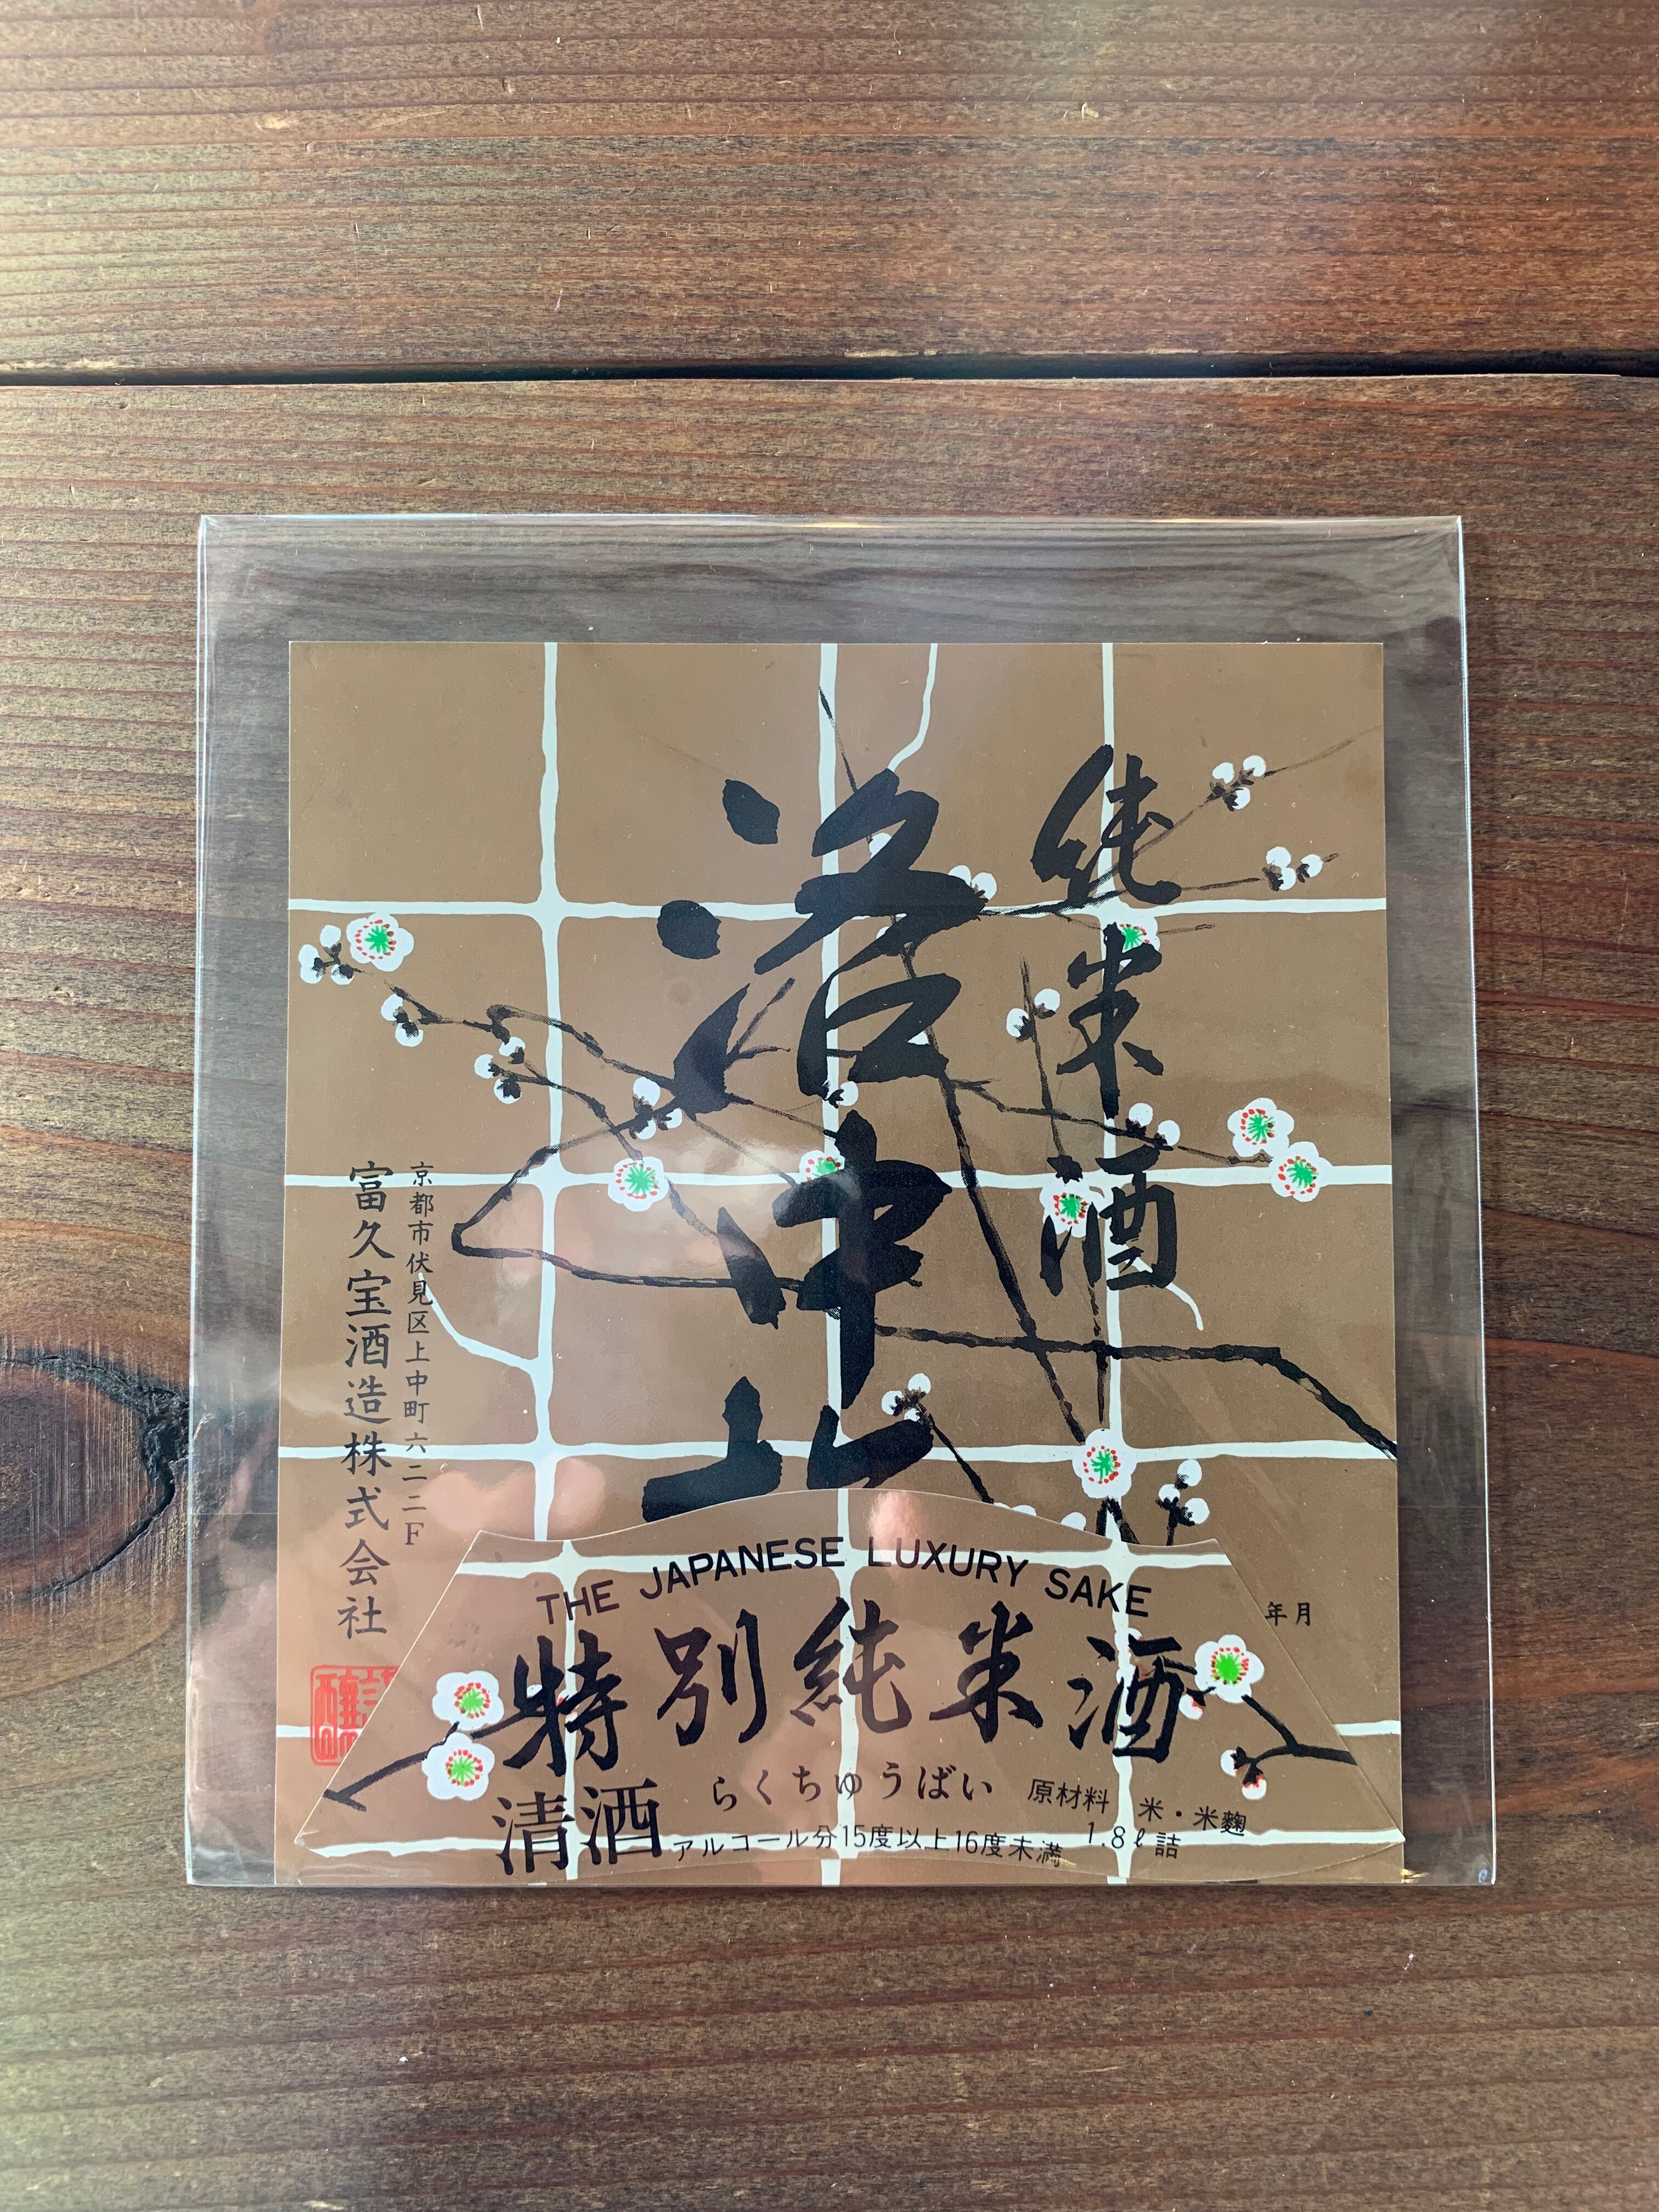 純米酒
洛中
京都市伏見区上中町六二二F
富久宝酒造株式会社
年月
THE JAPANESE LUXURY SAKE
特別純米酒
清酒
らくちゅうばい
原材料 米・米麴
アルコール分15度以上16度未満
1.8ℓ詰